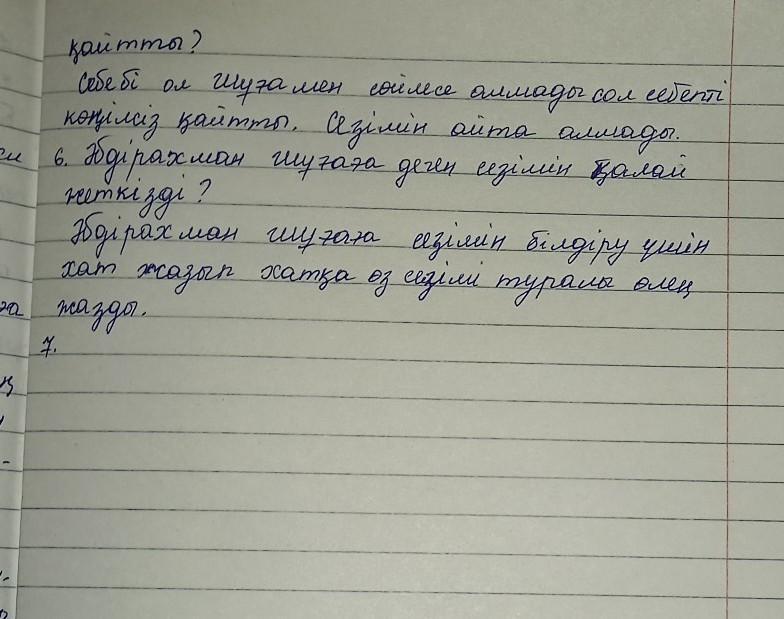 қайтты?
Себебі ол Шуғамен сөйлесе алмады сол себепті
көңілсіз қайтты. Сезімін айта алмады.
6. Әбдірахман Шуғаға деген сезімін қалай
жеткізді?
Әбдірахман Шуғаға сезімін білдіру үшін
хат жазып хатқа өз сезімі туралы өлең
жазды.
7.